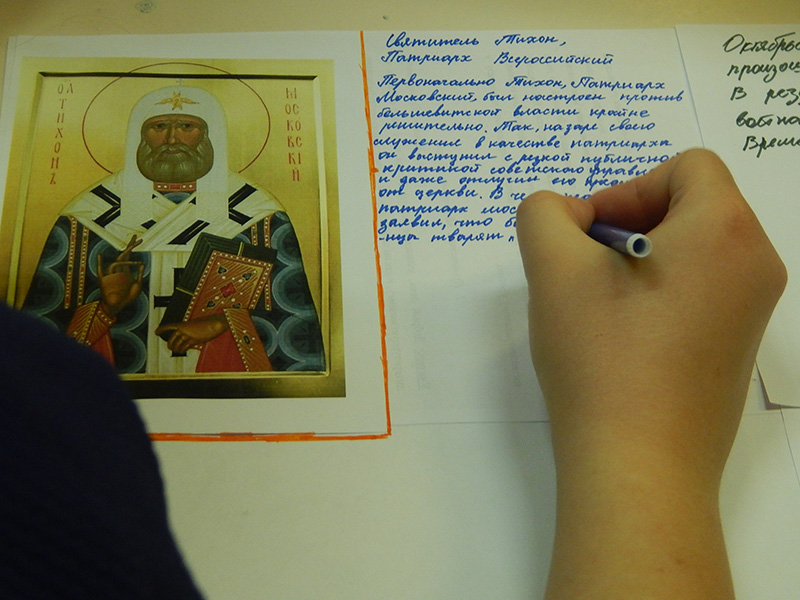 Ѻ А
ТИХОНЪ
МОСКОВСКІЙ
Святитель Тихон,
Патриарх Всероссийский
Первоначально Тихон, Патриарх
Московский, был настроен против
большевитской власти крайне
решительно. Так, назаре своего
служения в качестве патриарха
он воступил с резкой публичной
критикой советского правле
и даже отлучил его
от церкви. В
патриарх мос
заявил, что б
-нцы творят "
Октябрьс
произош
В рез
вост
Време